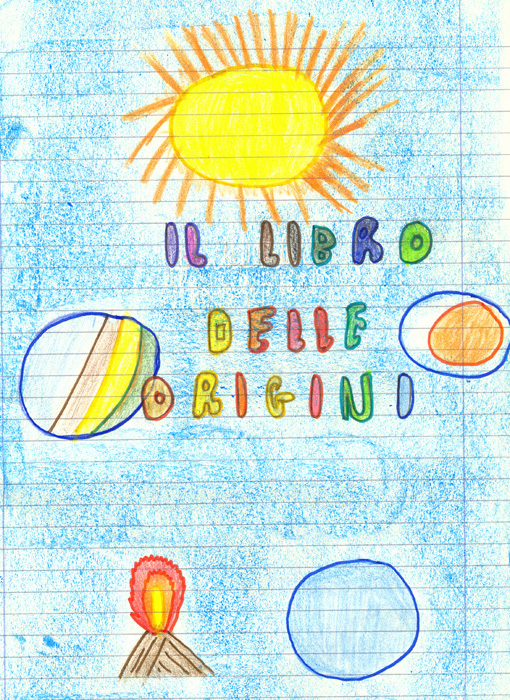 IL LIBRO
DELLE
ORIGINI